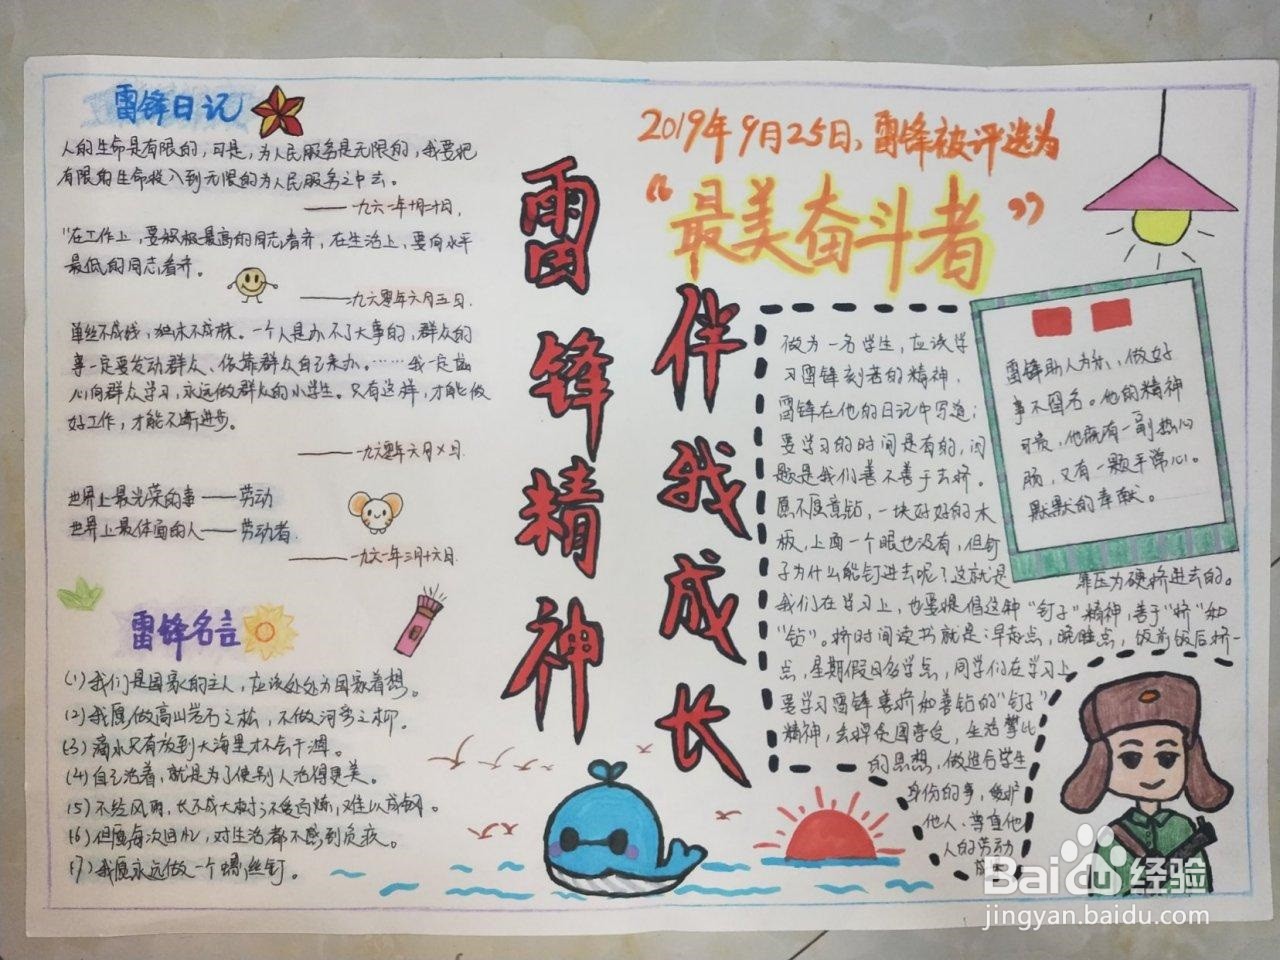 雷锋日记
人的生命是有限的，可是，为人民服务是无限的，我要把
有限的生命投入到无限的为人民服务之中去。
——一九六一年十月二十日．
"在工作上，要积极最高的同志看齐，在生活上，要向水平
最低的同志看齐。
——一九六零年六月五日．
单丝不成线，独木不成林。一个人是办不了大事的，群众的
事一定要发动群众、依靠群众自己来办。……我一定虚
心向群众学习，永远做群众的小学生。只有这样，才能做
好工作，才能不断进步。
——一九六零年六月 日．
世界上最光荣的事——劳动
世界上最体面的人——劳动者．
——一九六一年三月十六日．
雷锋名言
(1)我们是国家的主人，应该处处为国家着想。
(2)我愿做高山岩石之松，不做河旁之柳．
(3)滴水只有放到大海里才不会干涸。
(4)自己活着，就是为了使别人活得更美。
(5)不经风雨，长不成大树；不受百炼，难以成钢。
(6)但愿每次回忆，对生活都不感到负疚。
(7)我愿永远做一个螺丝钉。
雷锋精神
伴我成长
2019年9月25日，雷锋被评选为
“最美奋斗者”
雷锋助人为乐、做好
事不图名。他的精神
可贵，他既有一副热心
肠，又有一颗平常心。
默默的奉献。
做为一名学生，应该学
习雷锋刻苦的精神．
雷锋在他的日记中写道：
要学习的时间是有的，问
题是我们善不善于去挤．
愿不愿意钻，一块好好的木
板，上面一个眼也没有，但钉
子为什么能钉进去呢？这就是
靠压力硬挤进去的。
我们在学习上，也要提倡这种“钉子”精神，善于“挤”和
“钻”。挤时间读书就是：早起点，晚睡点，饭前饭后挤一
点，星期假日多学点，同学们在学习上
要学习雷锋善挤和善钻的“钉子”
精神，去掉贪图享受，生活攀比
的思想，做进后学生
身份的事，爱护
他人、尊重他
人的劳动
Baidu经验
jingyan.baidu.com